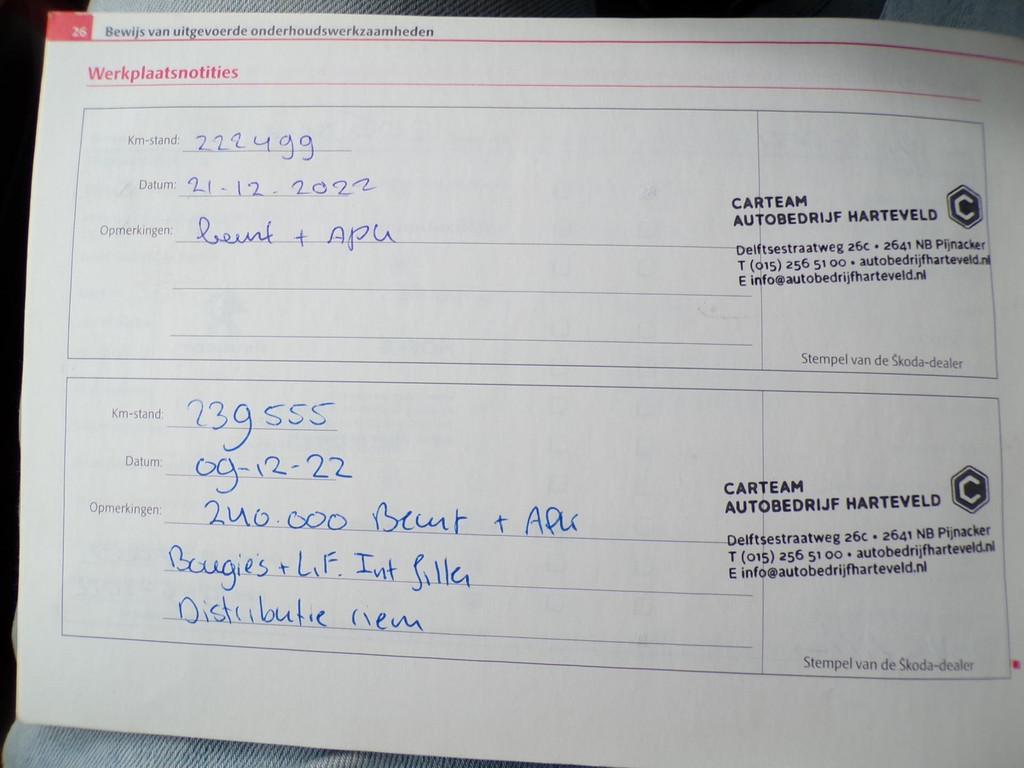 26 Bewijs van uitgevoerde onderhoudswerkzaamheden
Werkplaatsnotities
Km-stand: 222499
Datum: 21-12-2022
Opmerkingen: beurt + APK
CARTEAM
AUTOBEDRIJF HARTEVELD
Delftsestraatweg 26c • 2641 NB Pijnacker
T (015) 256 51 00 • autobedrijfharteveld.nl
E info@autobedrijfharteveld.nl
Stempel van de Škoda-dealer
Km-stand: 239555
Datum: 09-12-22
Opmerkingen: 240.000 Beurt + APK
Bougies + L.F. Int filter
Distributie riem
CARTEAM
AUTOBEDRIJF HARTEVELD
Delftsestraatweg 26c • 2641 NB Pijnacker
T (015) 256 51 00 • autobedrijfharteveld.nl
E info@autobedrijfharteveld.nl
Stempel van de Škoda-dealer